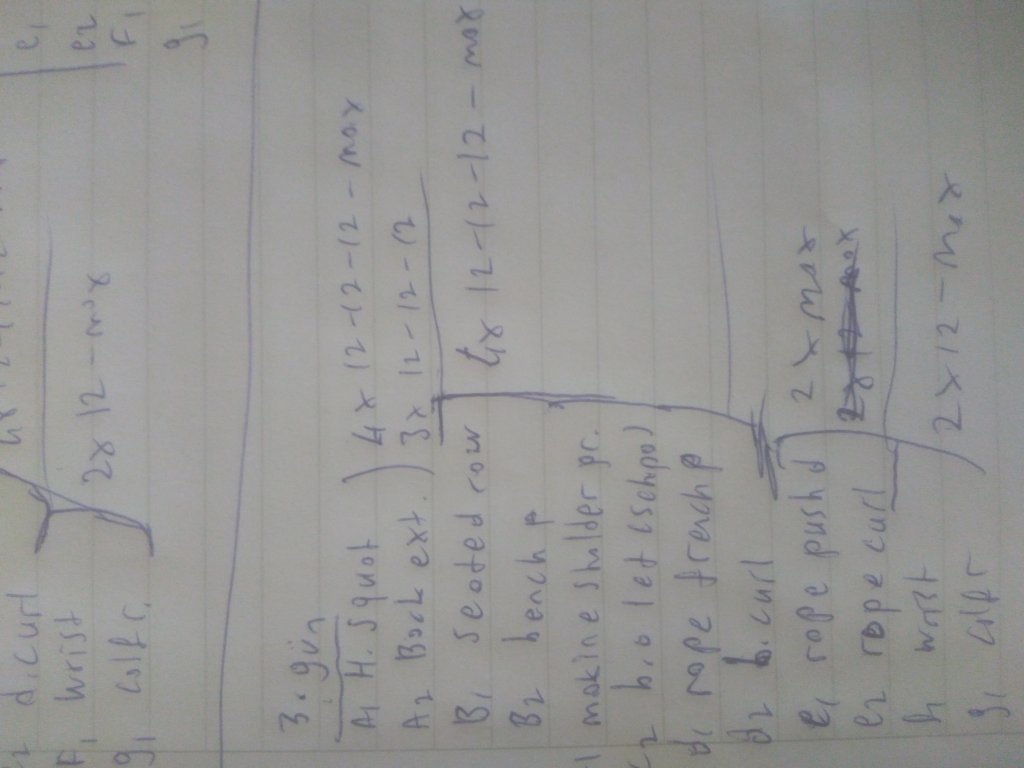 e1
e2
F1
g1
d.curl
F1 wrist
g1 calf r. 2x12-max
3. gün
A1 H. squat ) 4x 12-12-12-max
A2 Back ext. ) 3x 12-12-12
B1 seated row 4x 12-12-12-max
B2 bench p
makine shulder pr.
c2 b.o let (schpa)
d1 rope french p
d2 b.curl
e1 rope push d 2 x max
e2 rope curl
wrist
g1 calf r 2x12-max